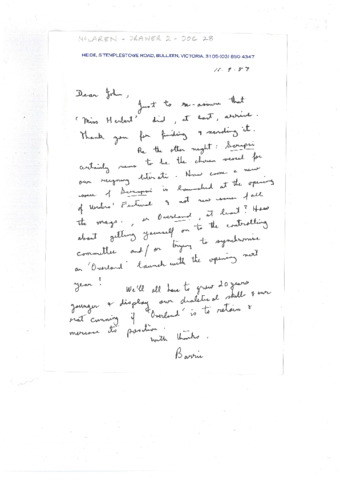 McLAREN - DRAWER 2 - DOC 28
HEIDE, 5 TEMPLESTOWE ROAD, BULLEEN, VICTORIA, 3105 (03) 850 4347
11.9.87
Dear John,
Just to re-assure that
'Miss Herbert' did, at last, arrive.
Thank you for finding & sending it.
Re the other night: Scripsi
certainly seems to be the chosen vessel for
our reigning literati. How come a new
issue of Scripsi is launched at the opening
of Writers' Festival & not new issues of all
the mags., or Overland, at least? How
about getting yourself on to the controlling
committee and/or trying to synchronise
an 'Overland' launch with the opening next
year!
We'll all have to grow 20 years
younger & display our dialectical skills & our
rat cunning if 'Overland' is to retain &
increase its position.
With thanks.
Barrie